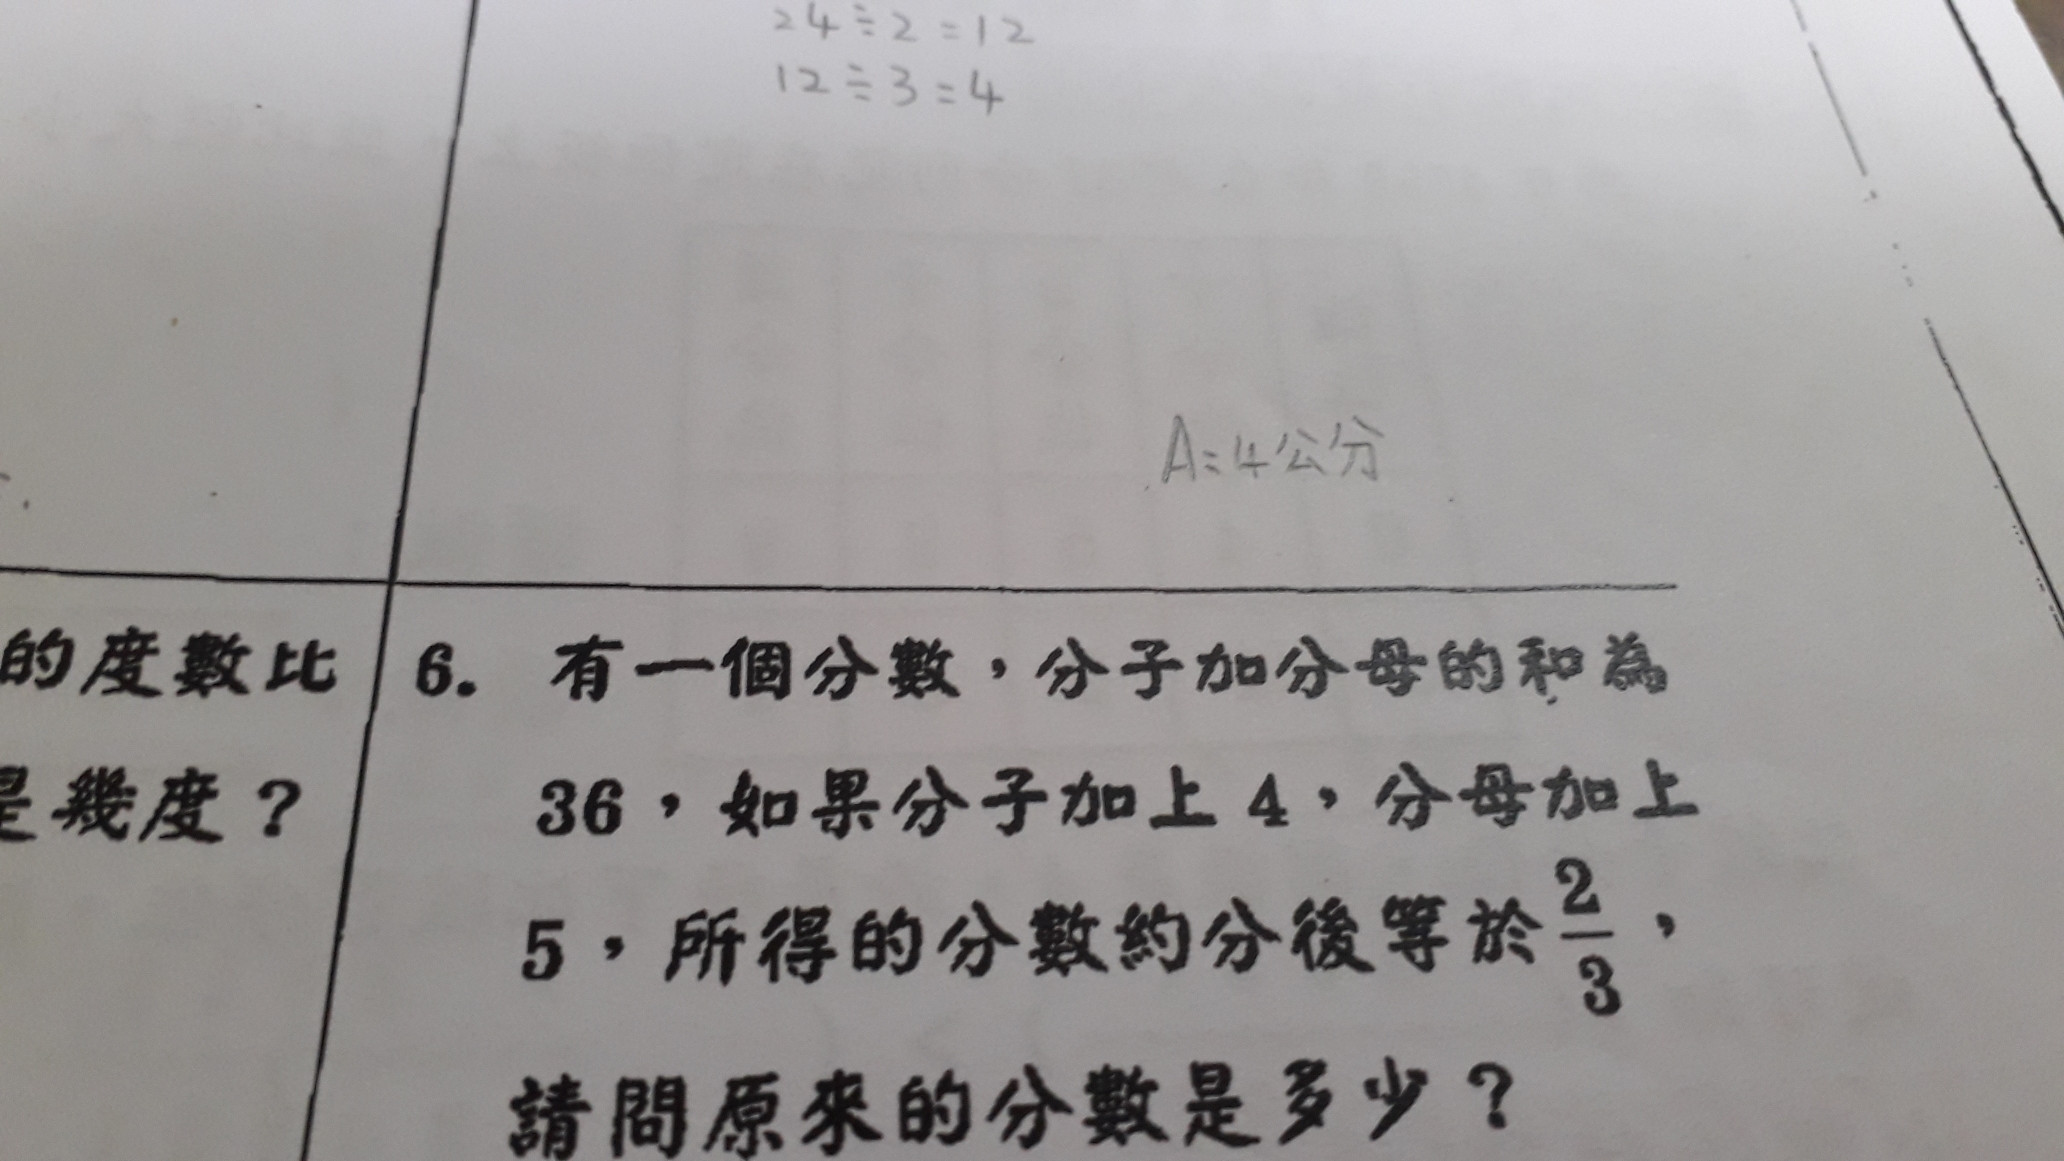 24÷2=12
12÷3=4
A:4公分
的度數比
是幾度？
6. 有一個分數，分子加分母的和為
36，如果分子加上4，分母加上
5，所得的分數約分後等於2/3，
請問原來的分數是多少？